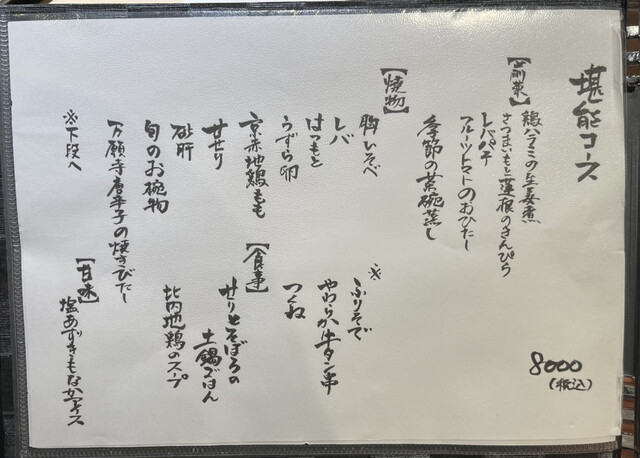 堪能コース
8000
(税込)
【前菜】
鶏ハラミの生姜煮
さつまいもと蓮根のきんぴら
レバパテ
フルーツトマトのおひたし
季節の茶碗蒸し
【焼物】
胸いそべ
レバ
はつもと
うずら卵
京赤地鶏もも
せせり
砂肝
旬のお椀物
万願寺唐辛子の焼きびたし
※下段へ
※
ふりそで
やわらか牛タン串
つくね
【食事】
せりとそぼろの
土鍋ごはん
比内地鶏のスープ
【甘味】
塩あずきもなかアイス